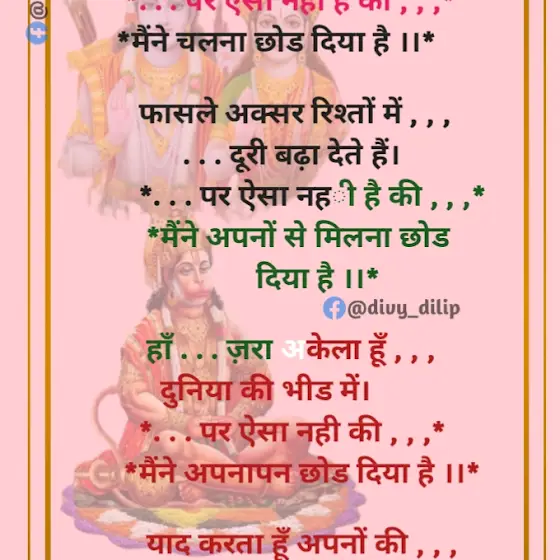 *. . . पर ऐसा नही है की , , ,*
*मैंने चलना छोड दिया है ।।*
फासले अक्सर रिश्तों में , , ,
. . . दूरी बढ़ा देते हैं।
*. . . पर ऐसा नही है की , , ,*
*मैंने अपनों से मिलना छोड
दिया है ।।*
@divy_dilip
हाँ . . . ज़रा अकेला हूँ , , ,
दुनिया की भीड में।
*. . . पर ऐसा नही की , , ,*
*मैंने अपनापन छोड दिया है ।।*
याद करता हूँ अपनों की , , ,